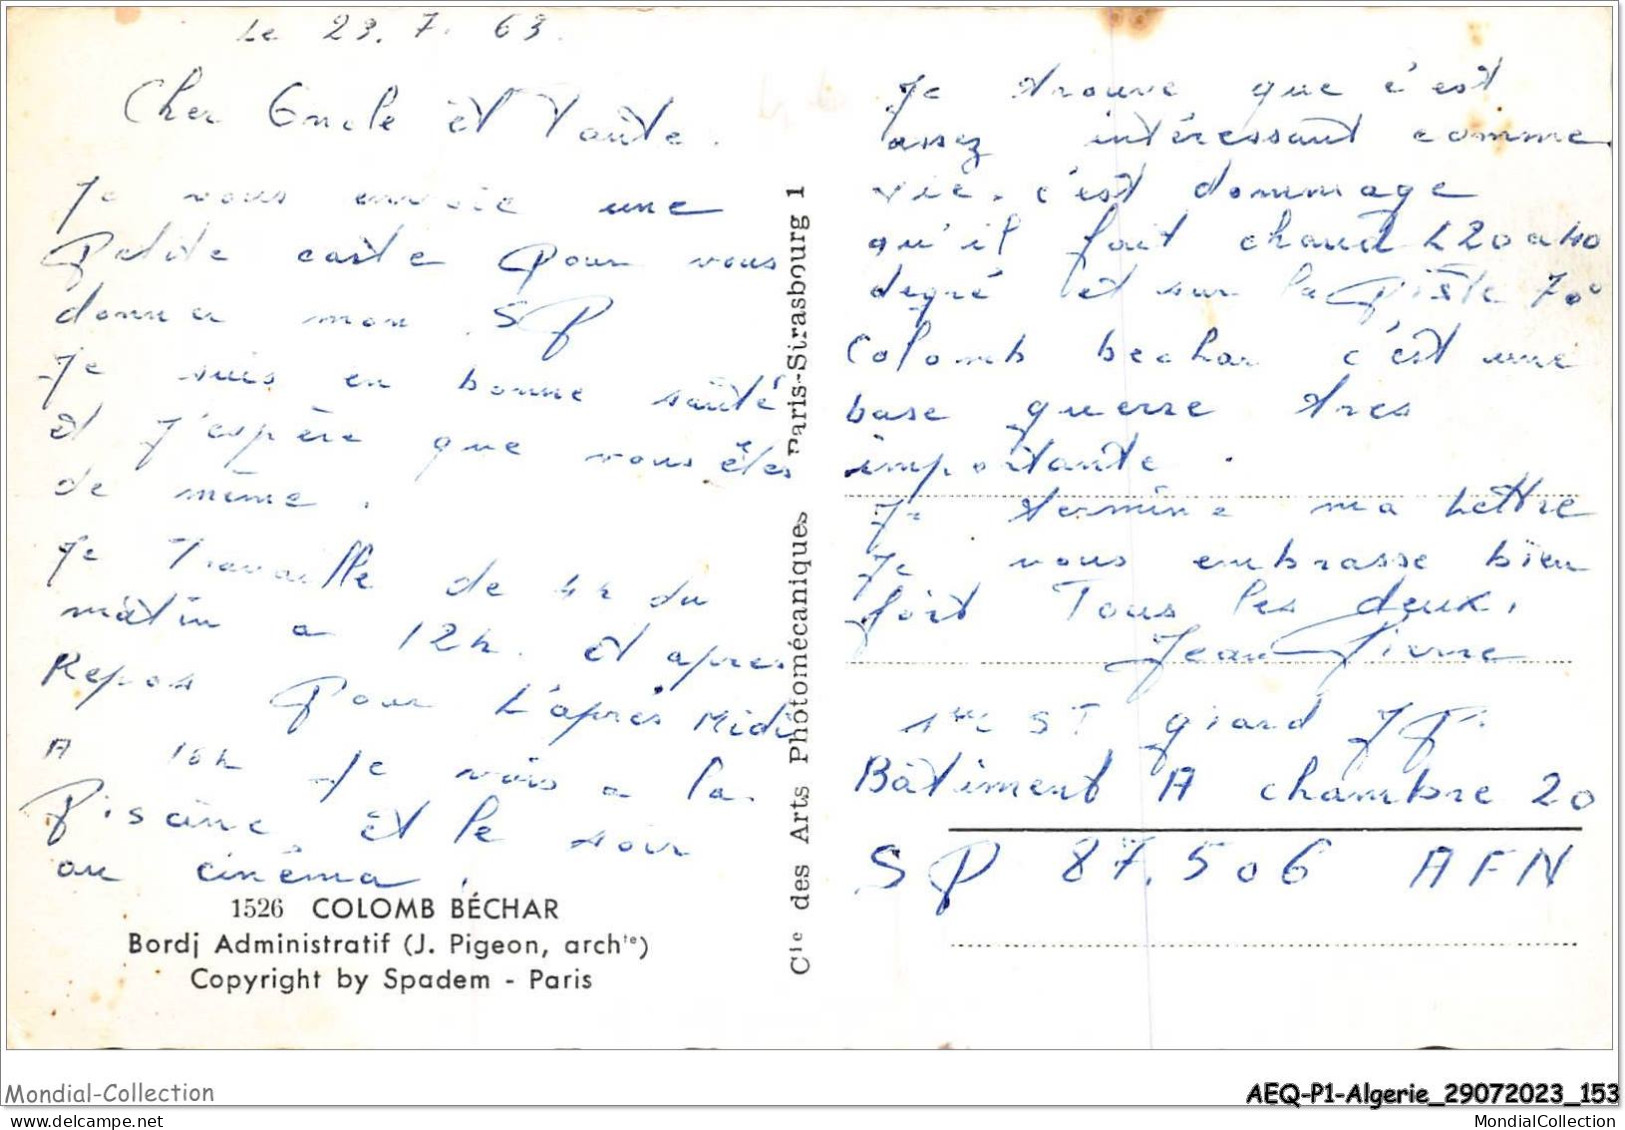 Le 23.7.63.
Cher Oncle et Tante.
Je vous envoie une
Petite carte pour vous
donner mon SP
Je suis en bonne santé
et J'espère que vous êtes
de même.
Je Travaille de 4h du
matin a 12h. et apres
Repos pour L'après Midi
A 16h Je vais a la
Piscine, et le soir
au cinéma.
1526 COLOMB BÉCHAR
Bordj Administratif (J. Pigeon, archte)
Copyright by Spadem - Paris
Cie des Arts Photomécaniques Paris-Strasbourg 1
Je trouve que c'est
assez intéressant comme
vie. c'est dommage
qu'il fait chaud 420 a 40
degré et sur la Piste 70°
Colomb bechar c'est une
base guerre tres
importante.
Je termine ma Lettre
Je vous embrasse bien
fort Tous les deux.
Jean Pierre
ST giard JP.
Bâtiment A chambre 20
SP 87.506 AFN
Mondial-Collection
AEQ-P1-Algerie_29072023_153
MondialCollection